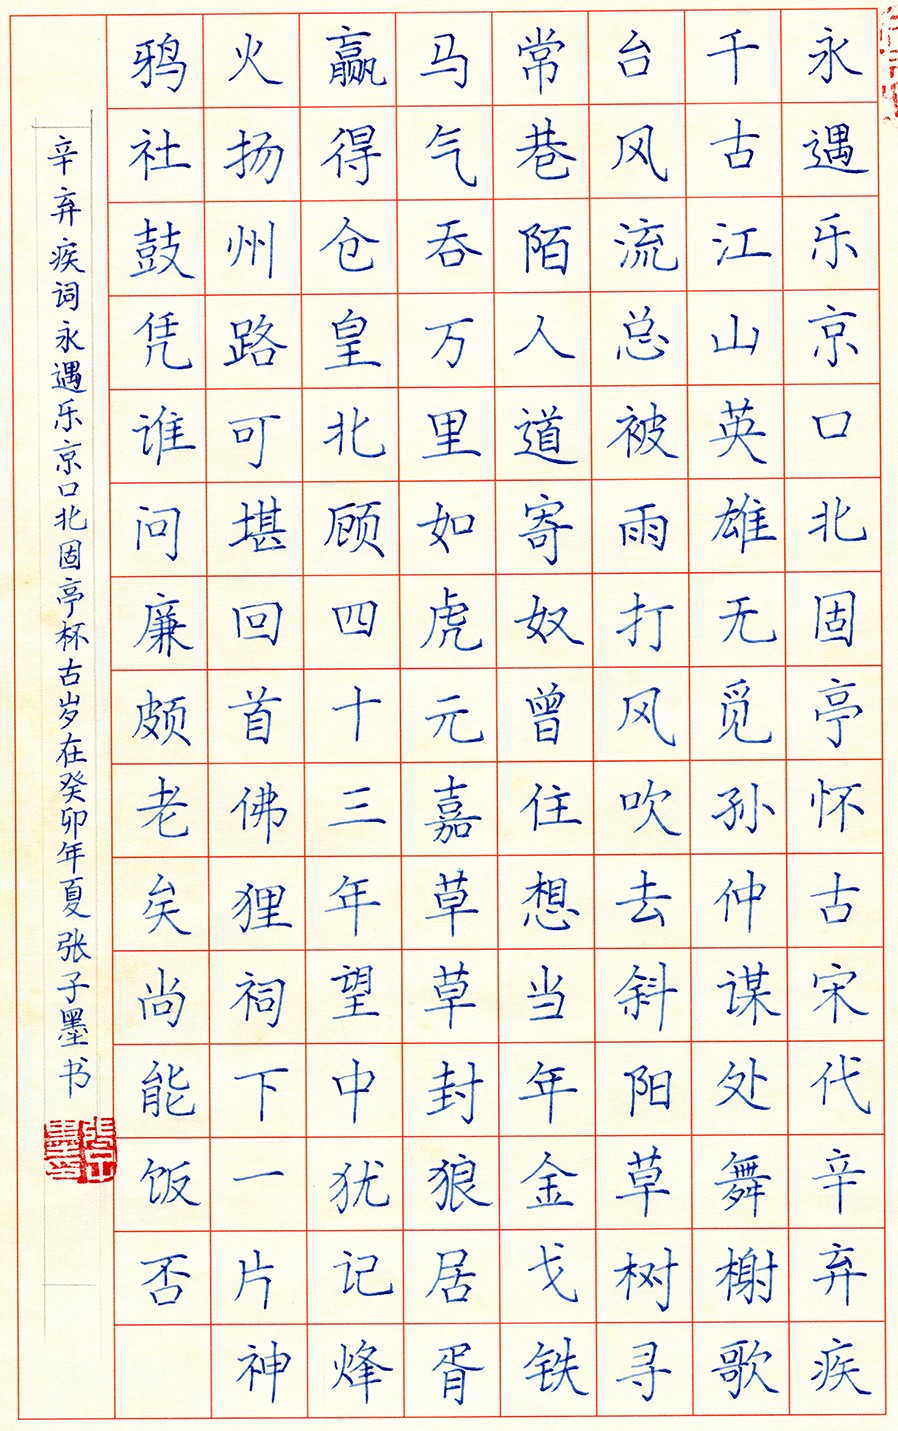 永遇乐京口北固亭怀古宋代辛弃疾
千古江山英雄无觅孙仲谋处舞榭歌
台风流总被雨打风吹去斜阳草树寻
常巷陌人道寄奴曾住想当年金戈铁
马气吞万里如虎元嘉草草封狼居胥
赢得仓皇北顾四十三年望中犹记烽
火扬州路可堪回首佛狸祠下一片神
鸦社鼓凭谁问廉颇老矣尚能饭否
辛弃疾词永遇乐京口北固亭杯古岁在癸卯年夏张子墨书